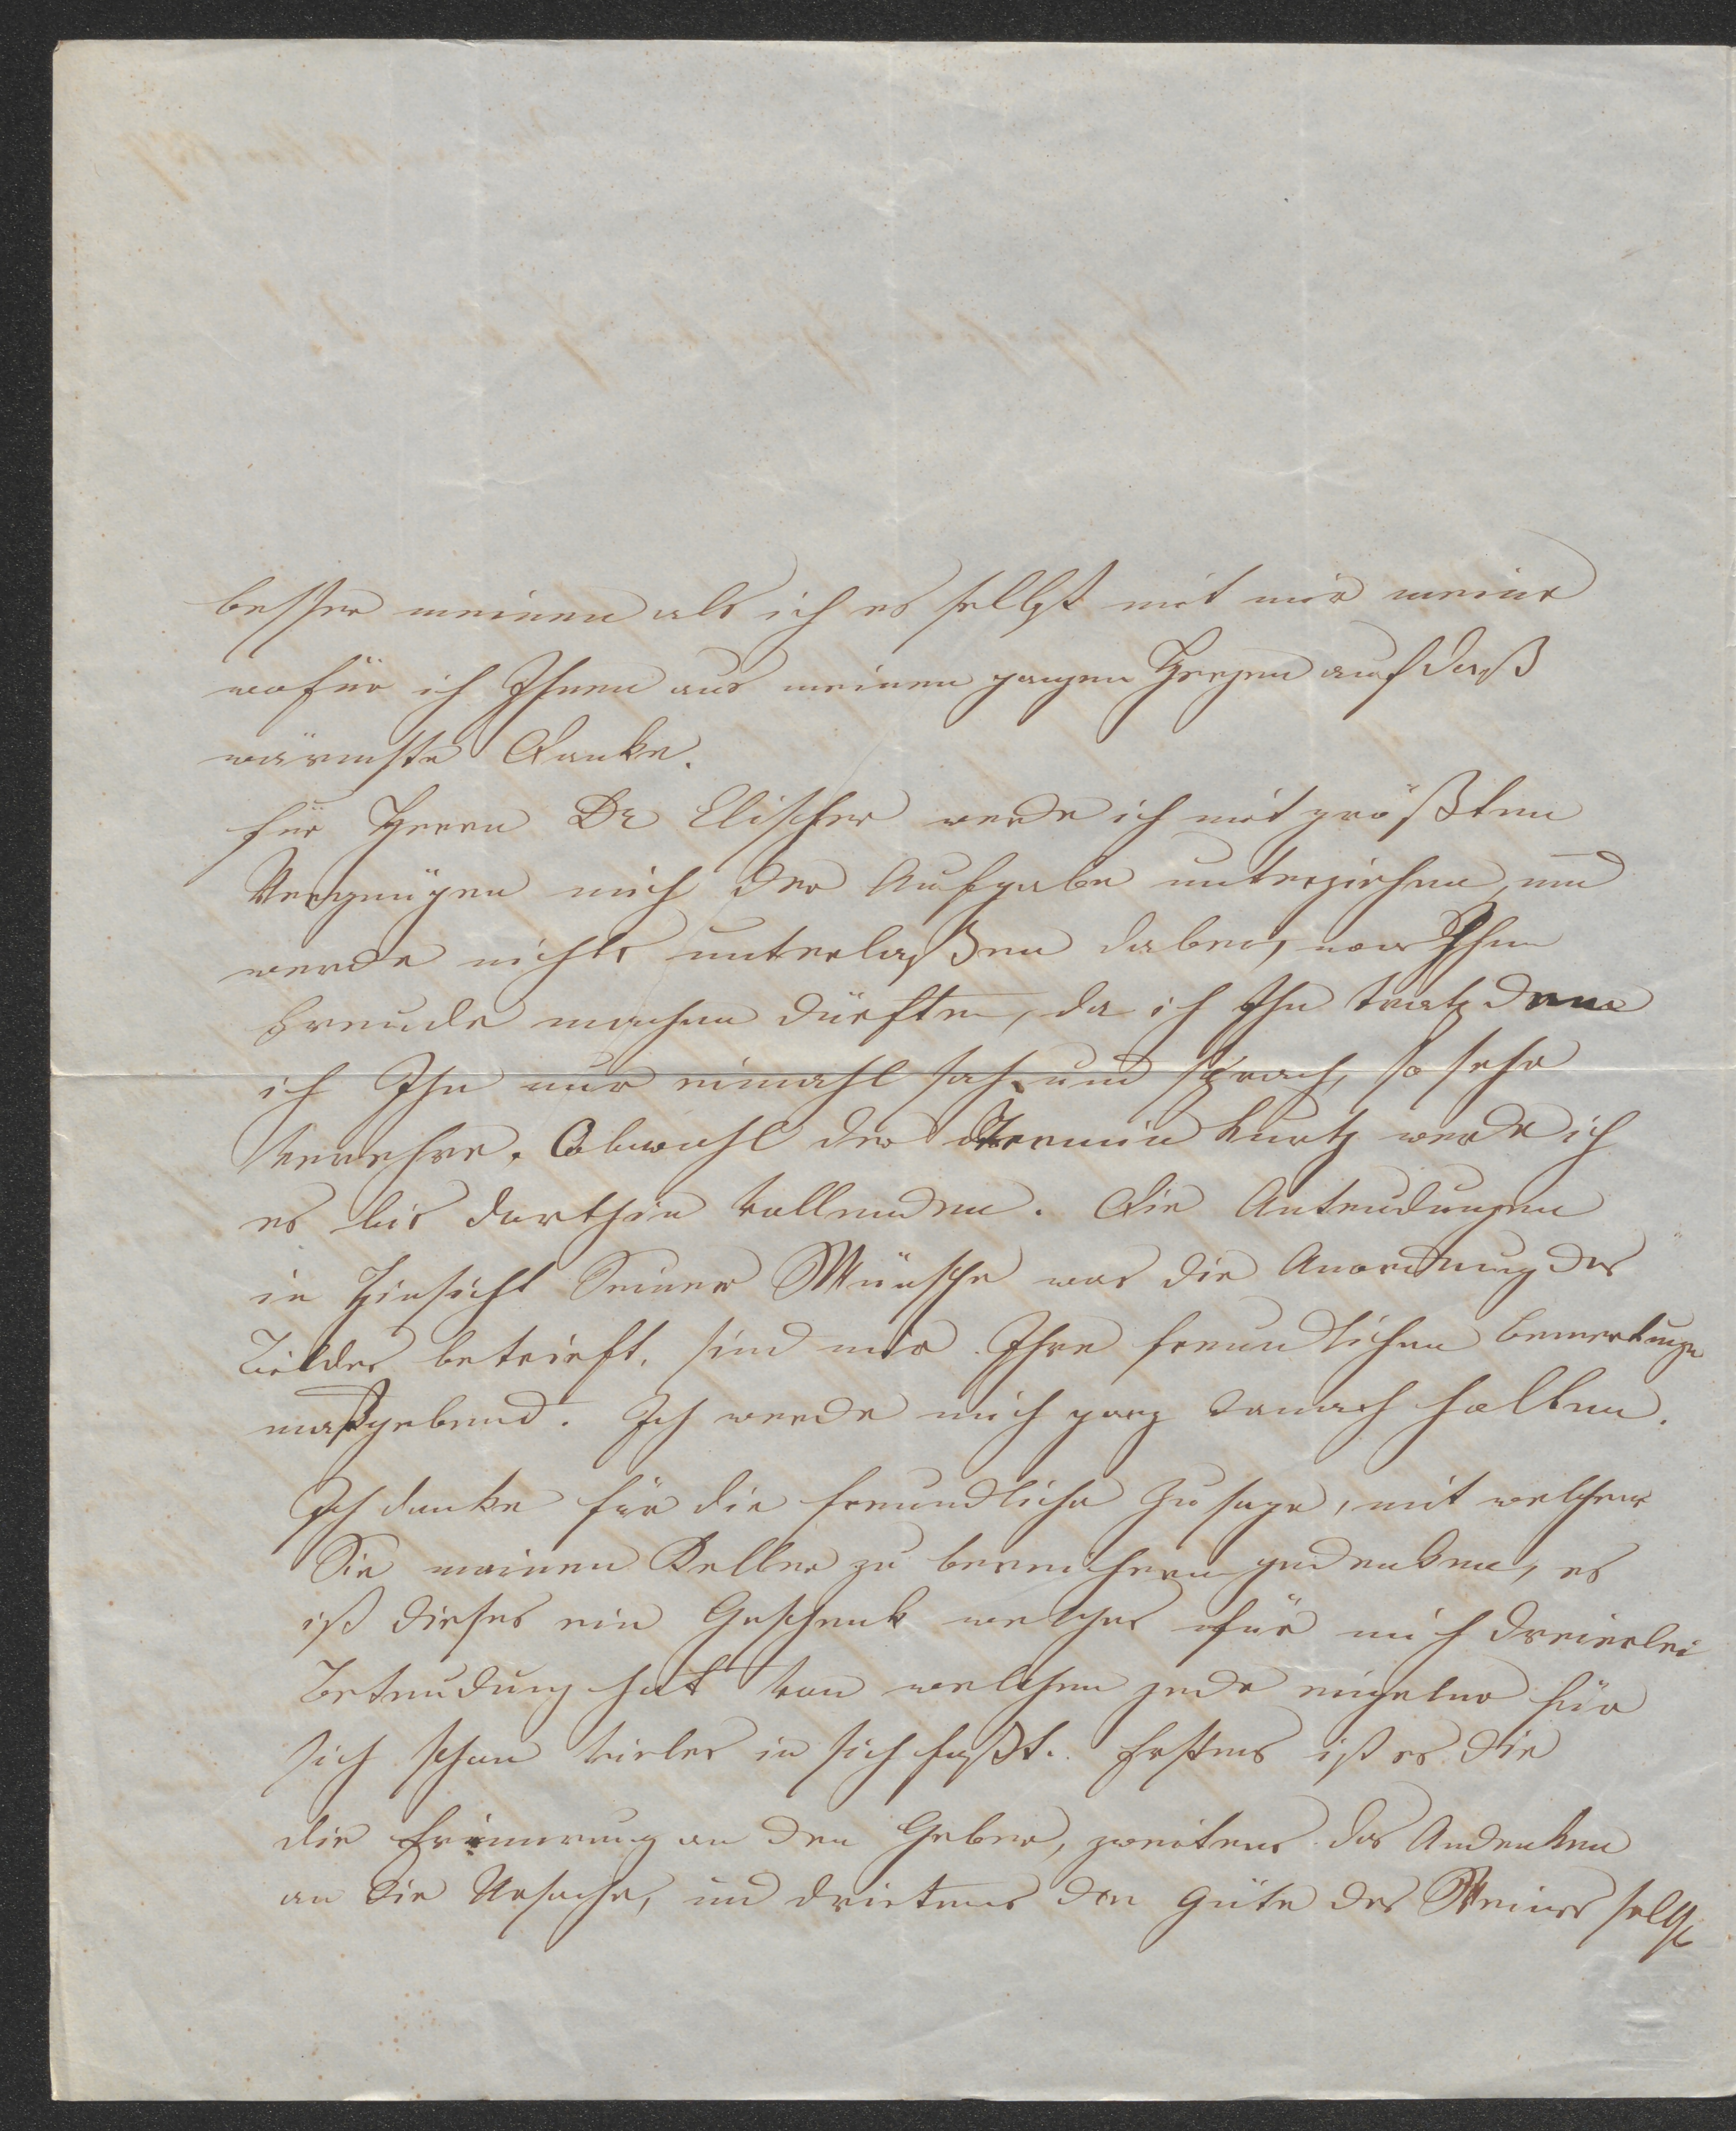 besser meinen als ich es selbst mit mir meine
wofür ich Ihnen aus meinen ganzen Herzen auf daß
wärmste Danke.
für Herrn Dr Elischer werde ich mit größten
Vergnügen mich der Aufgabe unterziehen, und
werde nichts unterlaßen dabei, was Ihm
Freude machen dürfte, da ich Ihn trotzdem
ich Ihn nur einmahl sah und sprach, so sehr
verehre. Obwohl der Termin kurtz werde ich
es bis dorthin vollenden. Die Anteudungen
in Hinsicht Seiner Wünsche was die Anordnung des
Bildes betrieft, sind mir Ihre freundlichen Bemerkunge
maßgebend. Ich werde mich ganz darnach halten.
Ich danke für die freundliche Zusage, mit welcher
Sie meinen Keller zu bereichern gedenken, es
ist dieses ein Geschenk welches für mich dreierlei
Beteudung hat von welchen jede einzelne für
sich schon vieles in sich faßt. Erstens ist es die
die Erinnerung an den Geber, zweitens das Andenken
an die Ursache, und drietens den Güte des Weines selbst